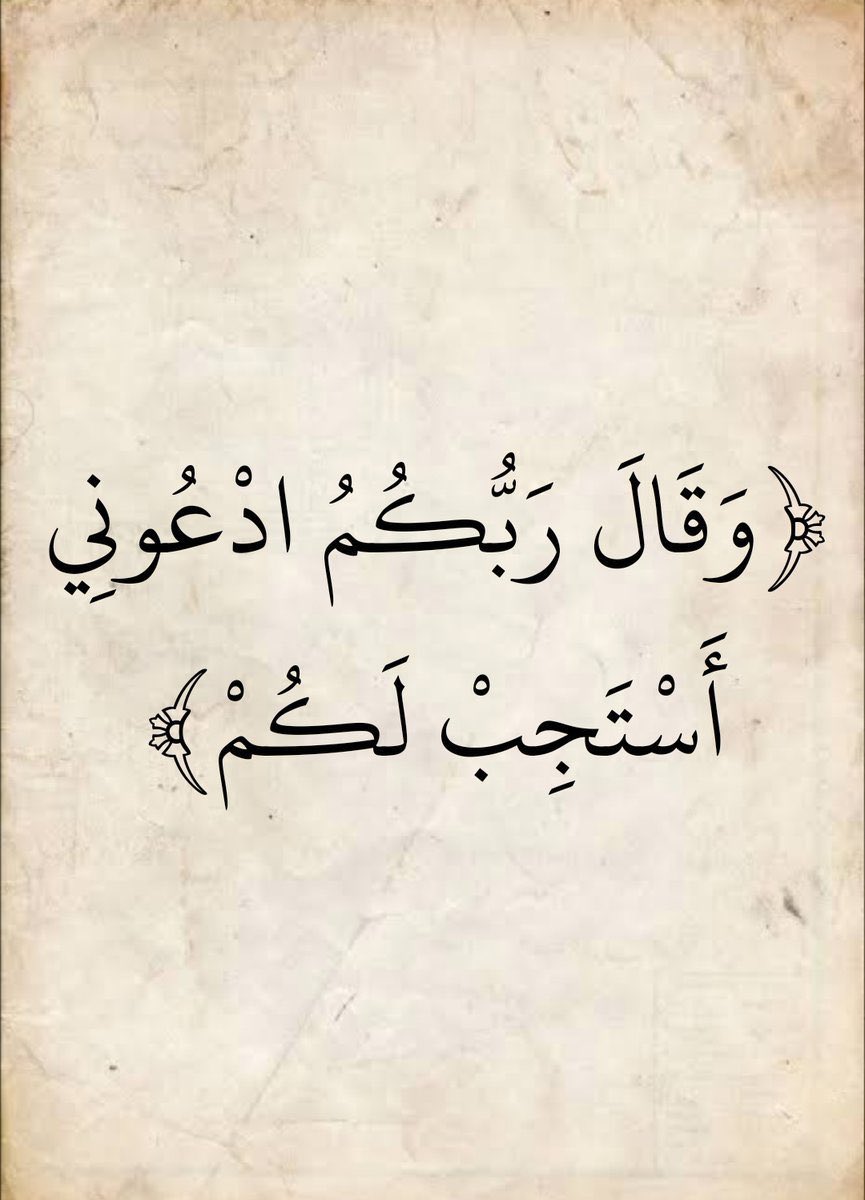 ﴿وَقَالَ رَبُّكُمُ ادْعُونِي
أَسْتَجِبْ لَكُمْ﴾